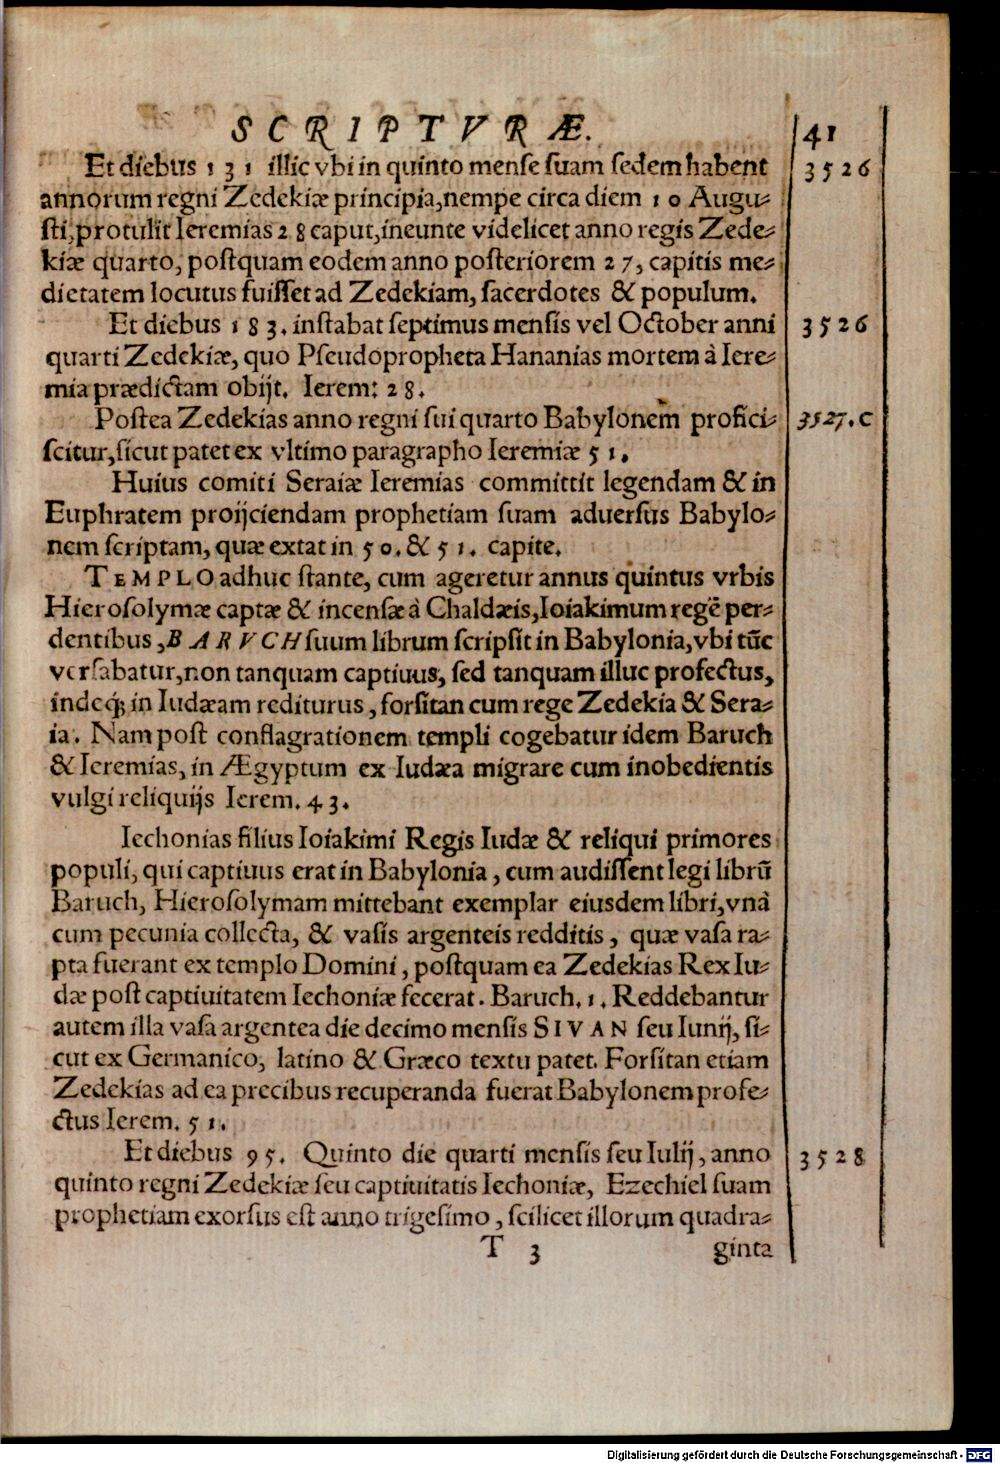 SCRIPTVRÆ. 41
Et diebus 131 illic vbi in quinto mense suam sedem habent 3526
annorum regni Zedekiæ principia, nempe circa diem 10 Augu-
sti, protulit Ieremias 28 caput, ineunte videlicet anno regis Zede-
kiæ quarto, postquam eodem anno posteriorem 27, capitis me-
dietatem locutus fuisset ad Zedekiam, sacerdotes & populum.
Et diebus 183. instabat septimus mensis vel October anni 3526
quarti Zedekiæ, quo Pseudopropheta Hananias mortem à Iere-
mia prædictam obijt. Ierem: 28.
Postea Zedekias anno regni sui quarto Babylonem profici- 3527.C
scitur, sicut patet ex vltimo paragrapho Ieremiæ 51.
Huius comiti Seraiæ Ieremias committit legendam & in
Euphratem proijciendam prophetiam suam aduersus Babylo-
nem scriptam, quæ extat in 50. & 51. capite.
TEMPLO adhuc stante, cum ageretur annus quintus vrbis
Hierosolymæ captæ & incensæ à Chaldæis, Ioiakimum regē per-
dentibus, BARVCH suum librum scripsit in Babylonia, vbi tūc
versabatur, non tanquam captiuus, sed tanquam illuc profectus,
indeq; in Iudæam rediturus, forsitan cum rege Zedekia & Sera-
ia. Nam post conflagrationem templi cogebatur idem Baruch
& Ieremias, in Ægyptum ex Iudæa migrare cum inobedientis
vulgi reliquijs Ierem. 43.
Iechonias filius Ioiakimi Regis Iudæ & reliqui primores
populi, qui captiuus erat in Babylonia, cum audissent legi librū
Baruch, Hierosolymam mittebant exemplar eiusdem libri, vnà
cum pecunia collecta, & vasis argenteis redditis, quæ vasa ra-
pta fuerant ex templo Domini, postquam ea Zedekias Rex Iu-
dæ post captiuitatem Iechoniæ fecerat. Baruch. 1. Reddebantur
autem illa vasa argentea die decimo mensis SIVAN seu Iunij, si-
cut ex Germanico, latino & Græco textu patet. Forsitan etiam
Zedekias ad ea precibus recuperanda fuerat Babylonem profe-
ctus Ierem. 51.
Et diebus 95. Quinto die quarti mensis seu Iulij, anno 3528
quinto regni Zedekiæ seu captiuitatis Iechoniæ, Ezechiel suam
prophetiam exorsus est anno trigesimo, scilicet illorum quadra-
T 3 ginta
Digitalisierung gefördert durch die Deutsche Forschungsgemeinschaft - DFG